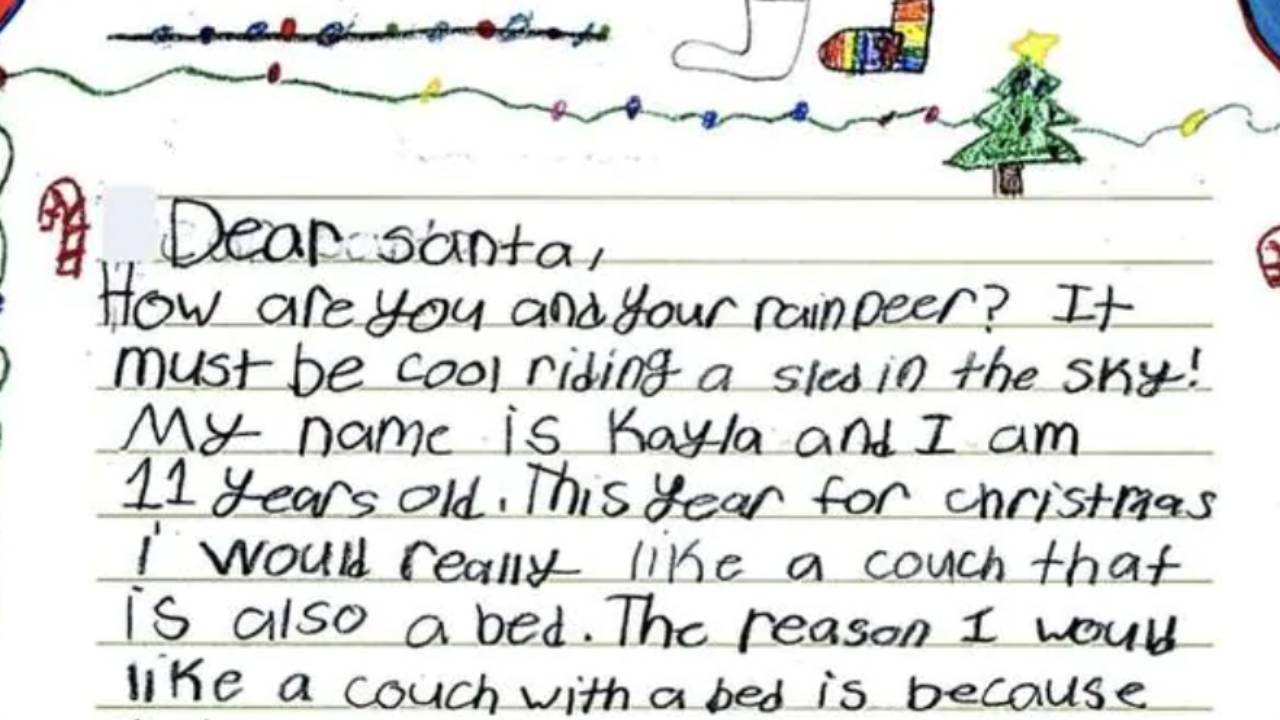 Dear santa,
How are you and your rainDeer? It
must be cool riding a sled in the sky!
My name is Kayla and I am
11 years old. This year for christmas
i would really like a couch that
is also a bed. The reason I would
like a couch with a bed is because